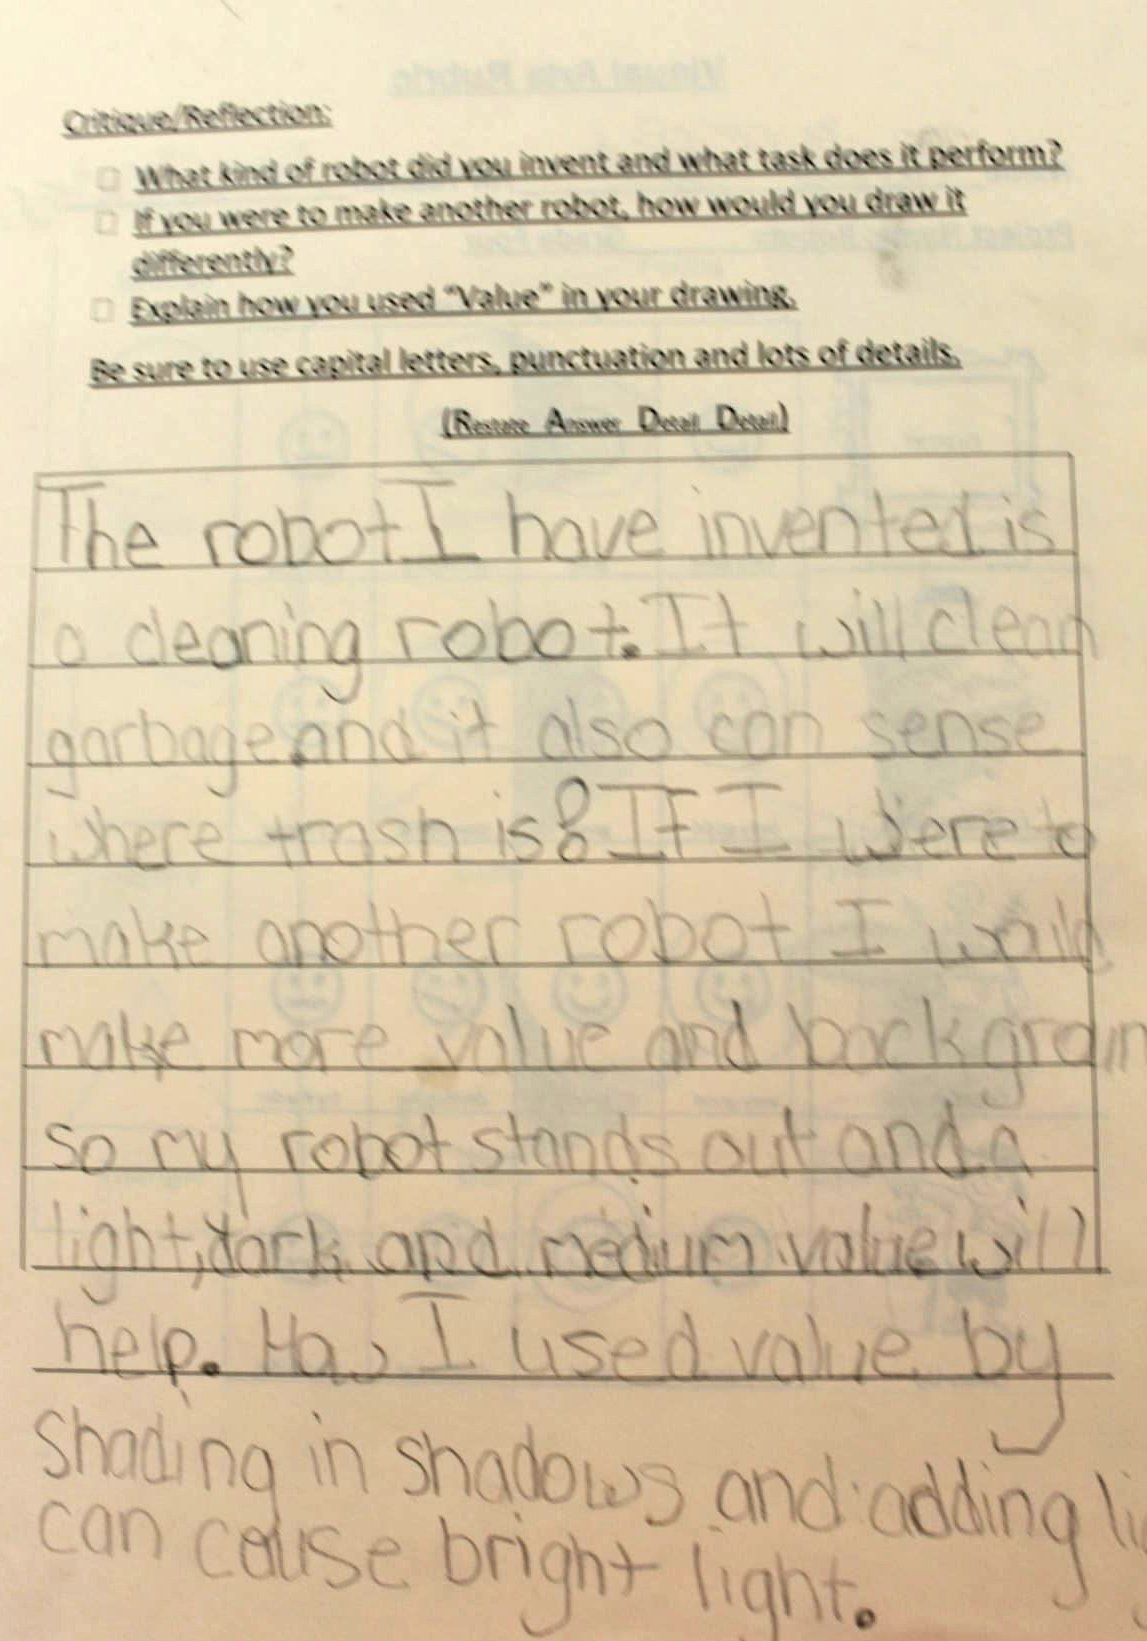 Critique/Reflection:
What kind of robot did you invent and what task does it perform?
If you were to make another robot, how would you draw it
differently?
Explain how you used "Value" in your drawing.
Be sure to use capital letters, punctuation and lots of details.
(Restate Answer Detail Detail)
The robot I have invented is
a cleaning robot. It will clean
garbage and it also can sense
where trash is! If I were to
make another robot I would
make more value and backgroun
so my robot stands out and a
light, dark and medium value will
help. How I used value by
Shading in shadows and adding
can cause bright light.